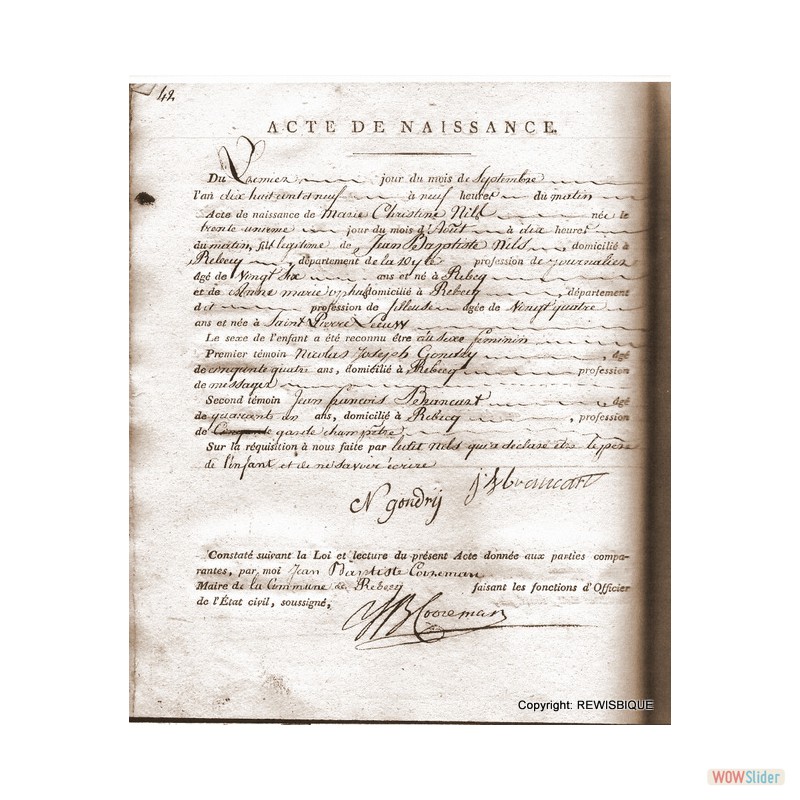 42
ACTE DE NAISSANCE.
Du Premier jour du mois de Septembre
l'an dix huit cent et neuf à neuf heures du matin
Acte de naissance de Marie Christine Nils née le
trente unieme jour du mois d'Août à dix heures
du matin, fill legitime de Jean Baptiste Nils domicilié à
Rebecq, département de la Dyle profession de journalier
âgé de Vingt Six ans et né à Rebecq
et de Anne marie domicilié à Rebecq, département
d et profession de fileuse agée de Vingt quatre
ans et née à Saint Pierre Leeuw
Le sexe de l'enfant a été reconnu être du sexe feminin
Premier témoin Nicolas Joseph Gondry, âgé
de cinquante quatre ans, domicilié à Rebecq profession
de messager
Second témoin Jean françois Brancart, âgé
de quarante un ans, domicilié à Rebecq, profession
de garde champêtre
Sur la réquisition à nous faite par ledit Nils qui a déclaré être le pere
de l'enfant et de ne savoir écrire
N gondrij
Brancart
Constaté suivant la Loi et lecture du présent Acte donnée aux parties compa-
rantes, par moi Jean Baptiste Cooreman
Maire de la Commune de Rebecq faisant les fonctions d'Officier
de l'État civil, soussigné,
JB Cooreman
Copyright: REWISBIQUE
WOWSlider